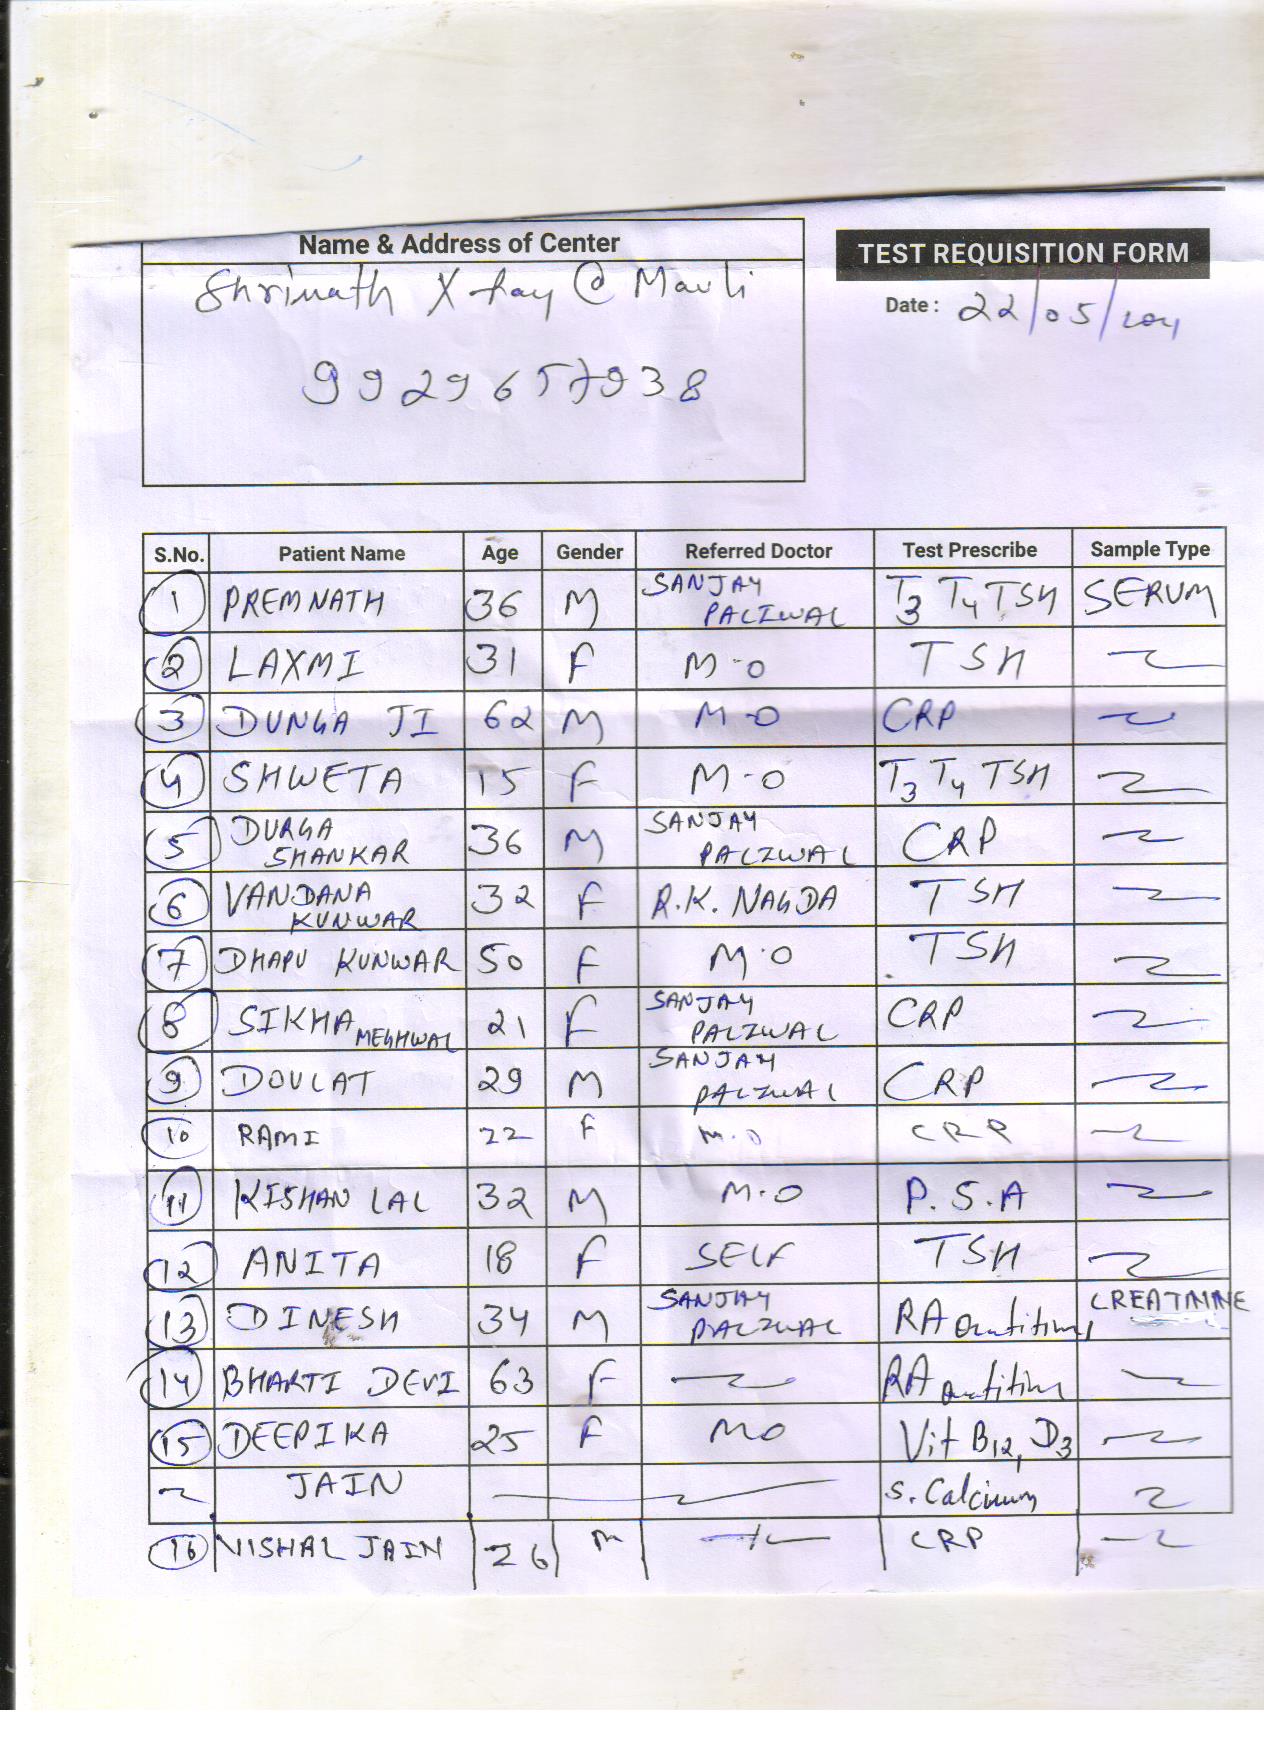 Name & Address of Center
TEST REQUISITION FORM
Shrinath X-ray @ Mavli
Date: 22/05/
9929657938
S.No. Patient Name Age Gender Referred Doctor Test Prescribe Sample Type
1 PREMNATH 36 M SANJAY PALIWAL T3 T4 TSH SERUM
2 LAXMI 31 F M-O TSH
3 DUNGA JI 62 M M-O CRP
4 SHWETA 15 F M-O T3 T4 TSH
5 DURGA SHANKAR 36 M SANJAY PALIWAL CRP
6 VANDANA KUNWAR 32 F R.K. NAGDA TSH
7 DHAPU KUNWAR 50 F M.O TSH
8 SIKHA MEGHWAL 21 F SANJAY PALIWAL CRP
9 DOULAT 29 M SANJAY PALIWAL CRP
10 RAMI 22 F M.O CRP
11 KISHAN LAL 32 M M.O P.S.A
12 ANITA 18 F SELF TSH
13 DINESH 34 M SANJAY PALIWAL RA CREATNINE
14 BHARTI DEVI 63 F RA
15 DEEPIKA 25 F MO Vit B12, D3
JAIN S. Calcium
16 VISHAL JAIN 26 M CRP